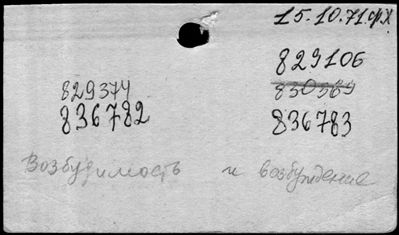 15.10.71.
829106
829374
836782
836783
Возбудимость и возбуждение